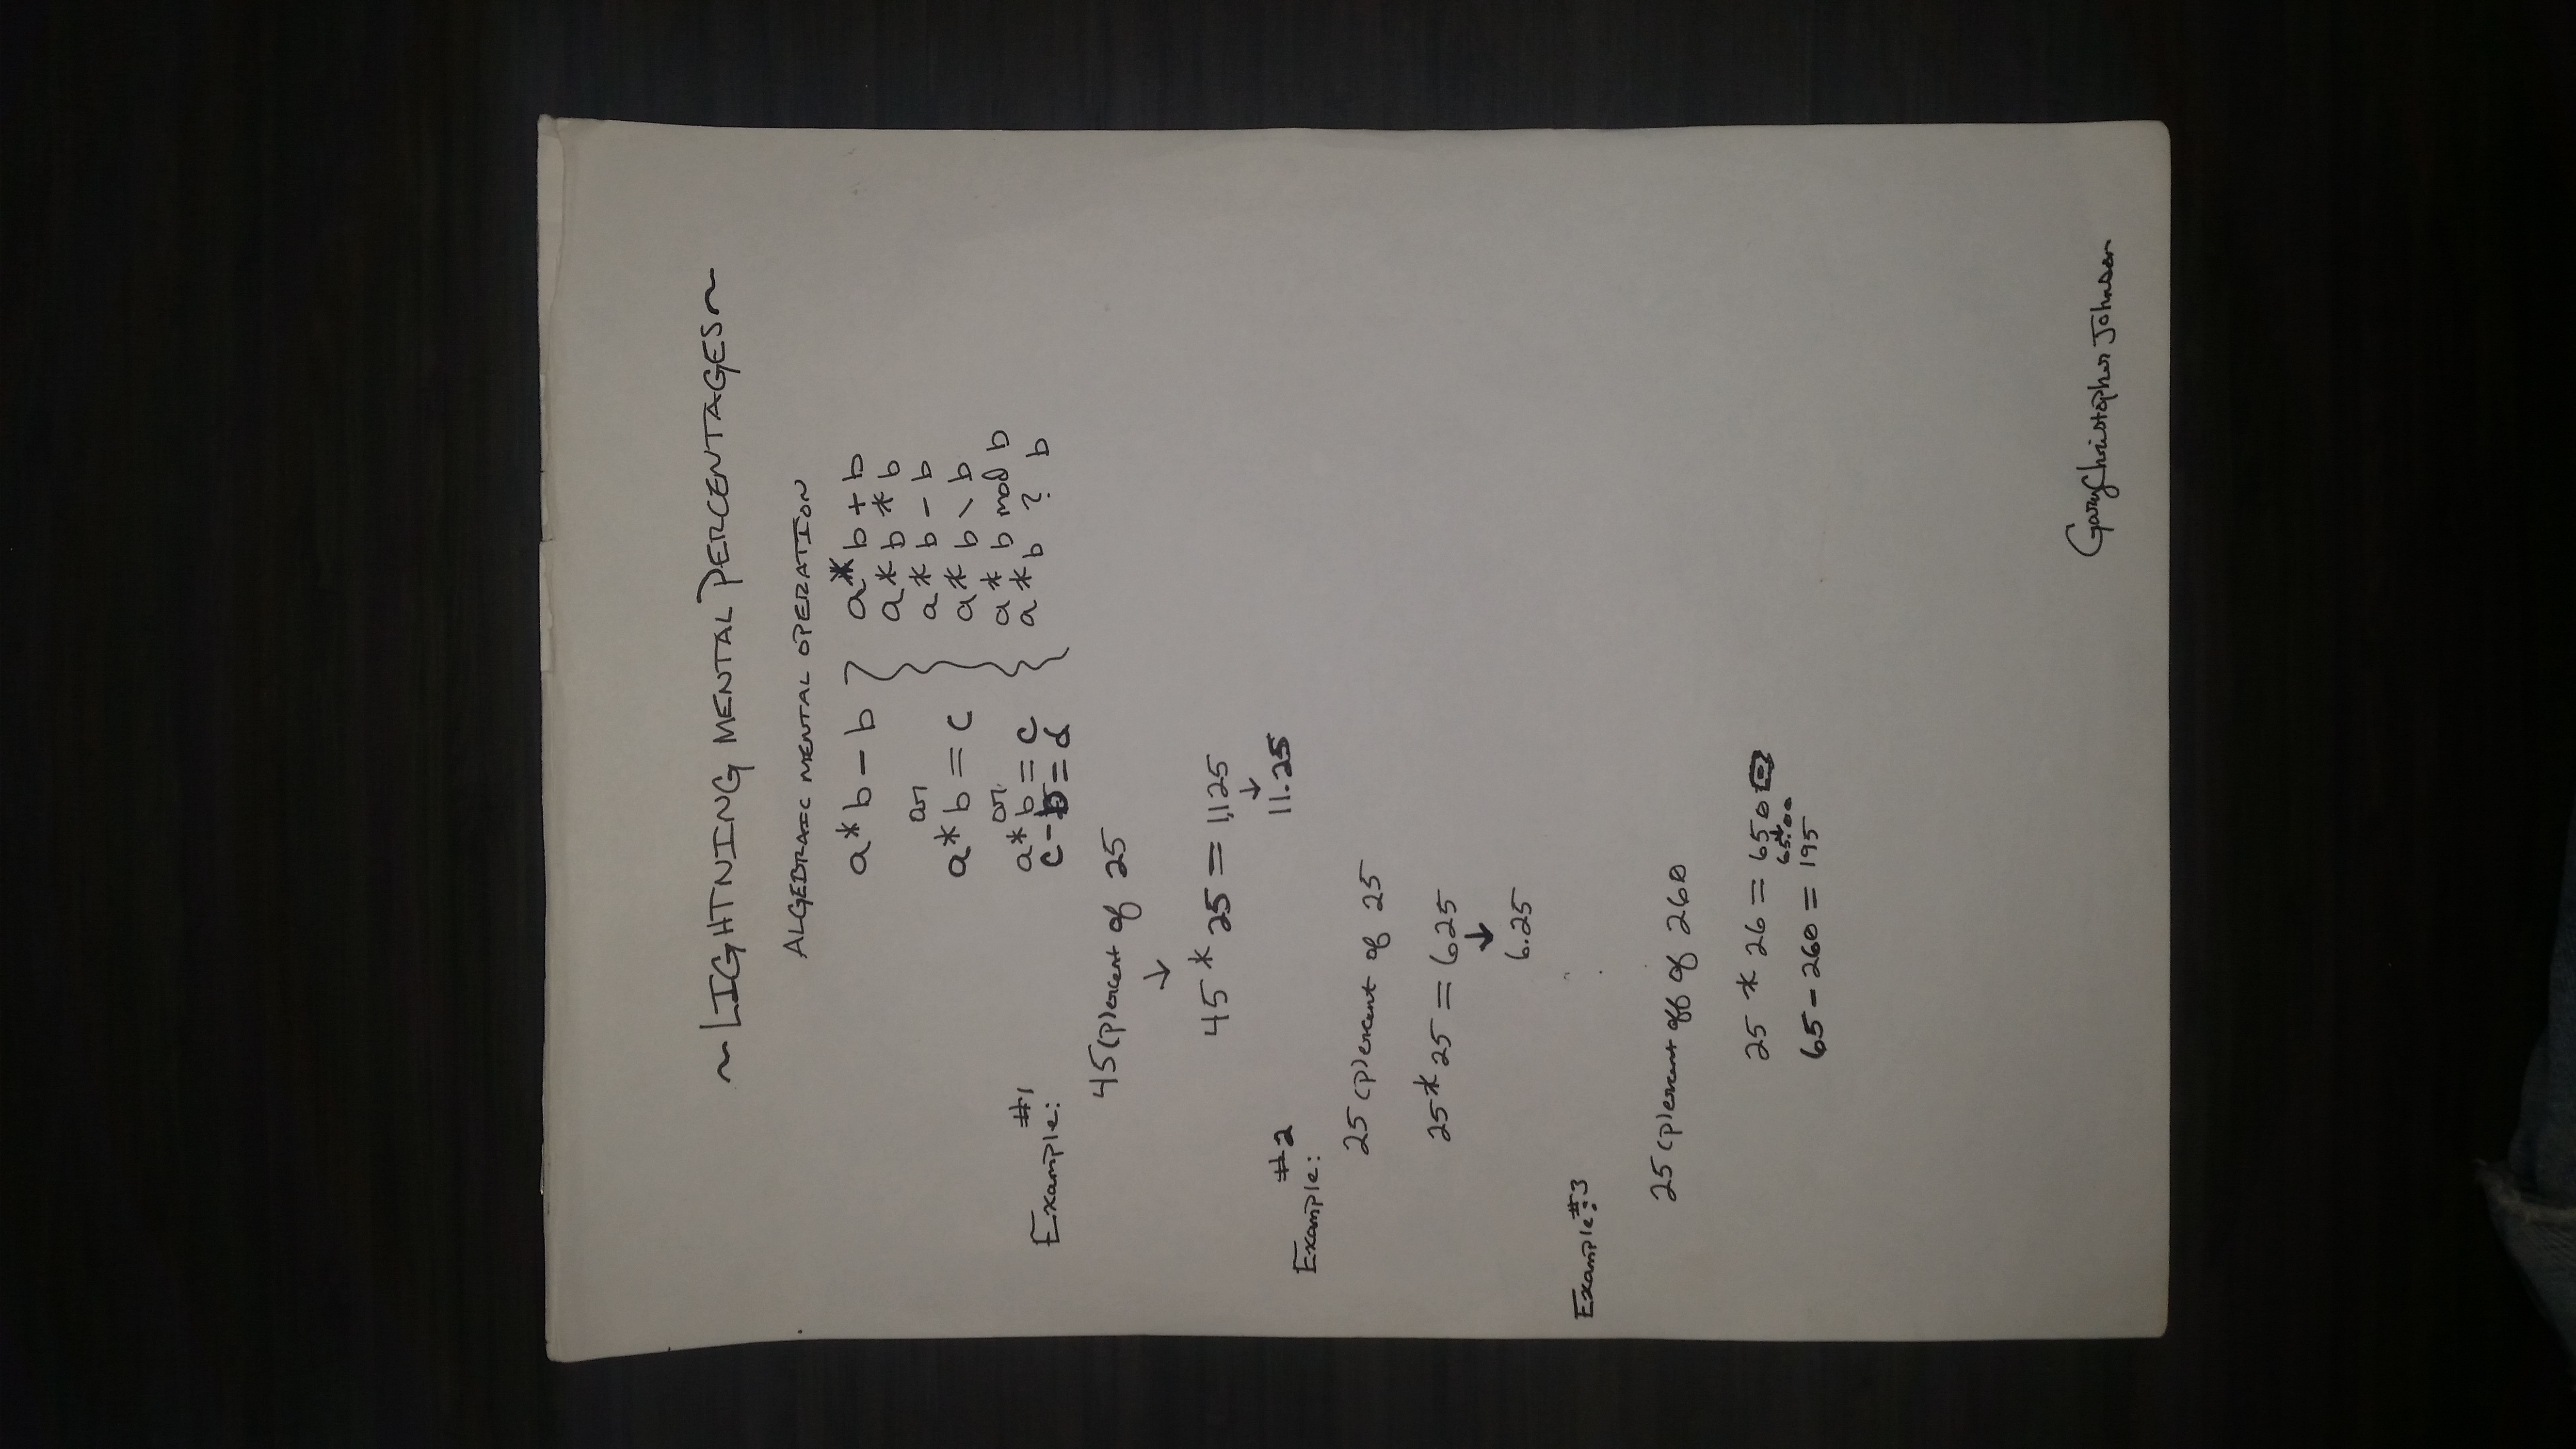 ~LIGHTNING MENTAL PERCENTAGES~
ALGEBRAIC MENTAL OPERATION
a*b-b
or
a*b=c
or
a*b=c
c-b=d
a*b+b
a*b*b
a*b-b
a*b\b
a*b mod b
a*b ? b
#1
Example:
45(p)ercent of 25
↓
45*25=1,125
↓
11.25
#2
Example:
25(p)ercent of 25
25*25=625
↓
6.25
Example:#3
25(p)ercent off of 260
25*26=650
↓
65.00
65-260=195
GaryChristopher Johnson